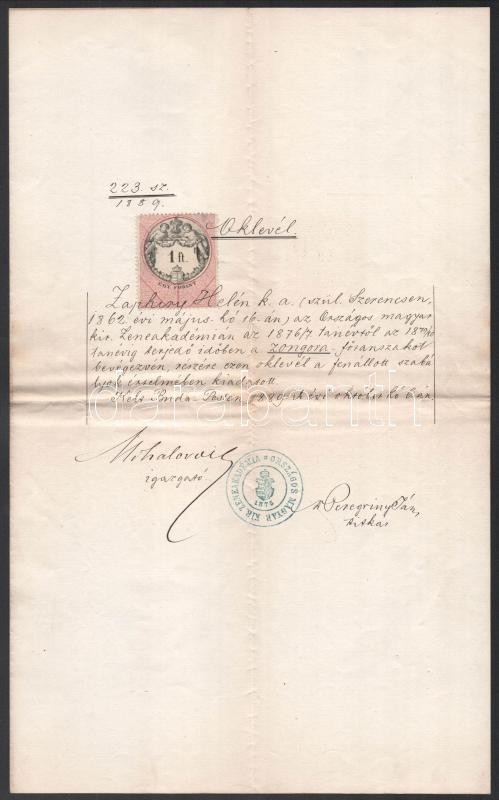 223. sz.
1889.
Oklevél.
1 ft.
EGY FORINT
Zaphiry Helén k. a. (szül. Szerencsen,
1862. évi május hó 16-án) az Országos magyar
kir. Zeneakadémián az 1876/7 tanévtől az 1879/80
tanévig terjedő időben a zongora-főtanszakot
bevégezvén, részére ezen oklevél a fenállott szabá
lyok értelmében kiadatott.
Kelt Buda-Pesten 1889-ik évi október hó 6-án
Mihalovich
igazgató
ORSZÁGOS MAGYAR KIR ZENEAKADÉMIA
1875
Dr Peregriny János
titkár
darabanth